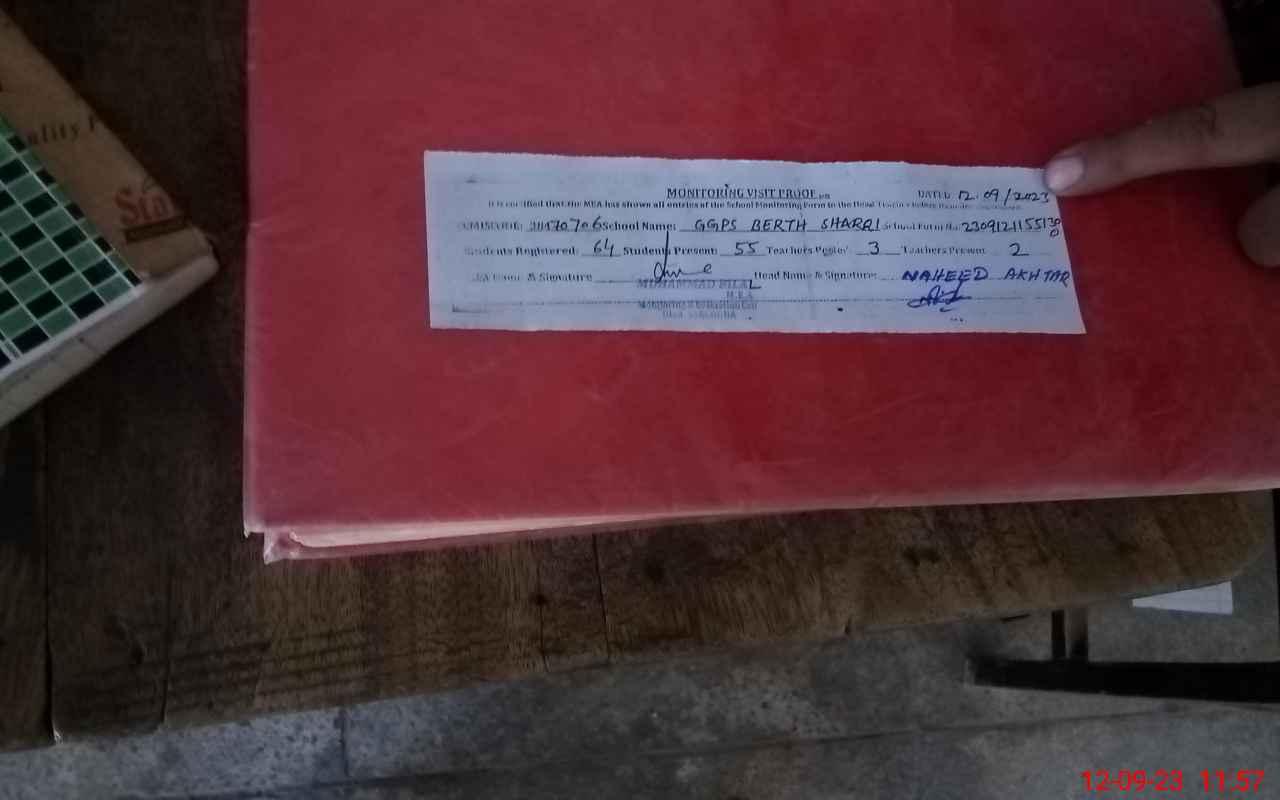 MONITORING VISIT PROOF
DATED 12.09/2023
It is certified that the MEA has shown all entries of the School Monitoring Form to the Head
School Name: GGPS BERTH SHARQI School Form No. 2309121155130
Students Registered: 64 Students Present: 55 Teachers Posted 3 Teachers Present 2
Name & Signature Head Name & Signature: NAHEED AKHTAR
MUHAMMAD BILAL
M.E.A
ality
12-09-23 11:57